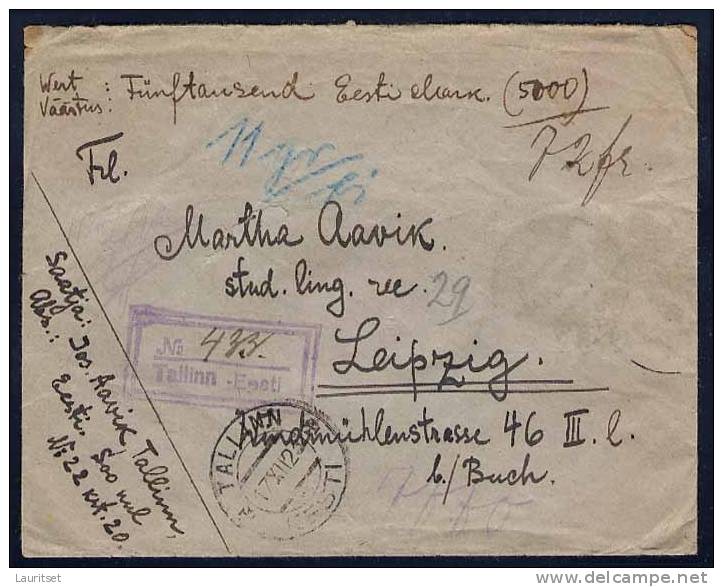 Wert : Fünftausend Eesti Mark. (5000)
Väärtus :
72 fr.
11 gr
Frl.
Martha Aavik.
stud. ling. rec. 29
Leipzig.
Windmühlenstrasse 46 III. l.
b/ Buch.
№ 433.
Tallinn - Eesti
TALLINN
EESTI
Saatja: Jos. Aavik, Tallinn,
Abs.: Eesti, Soo uul
№ 22 krt. 20.
Lauritset
www.delcampe.net